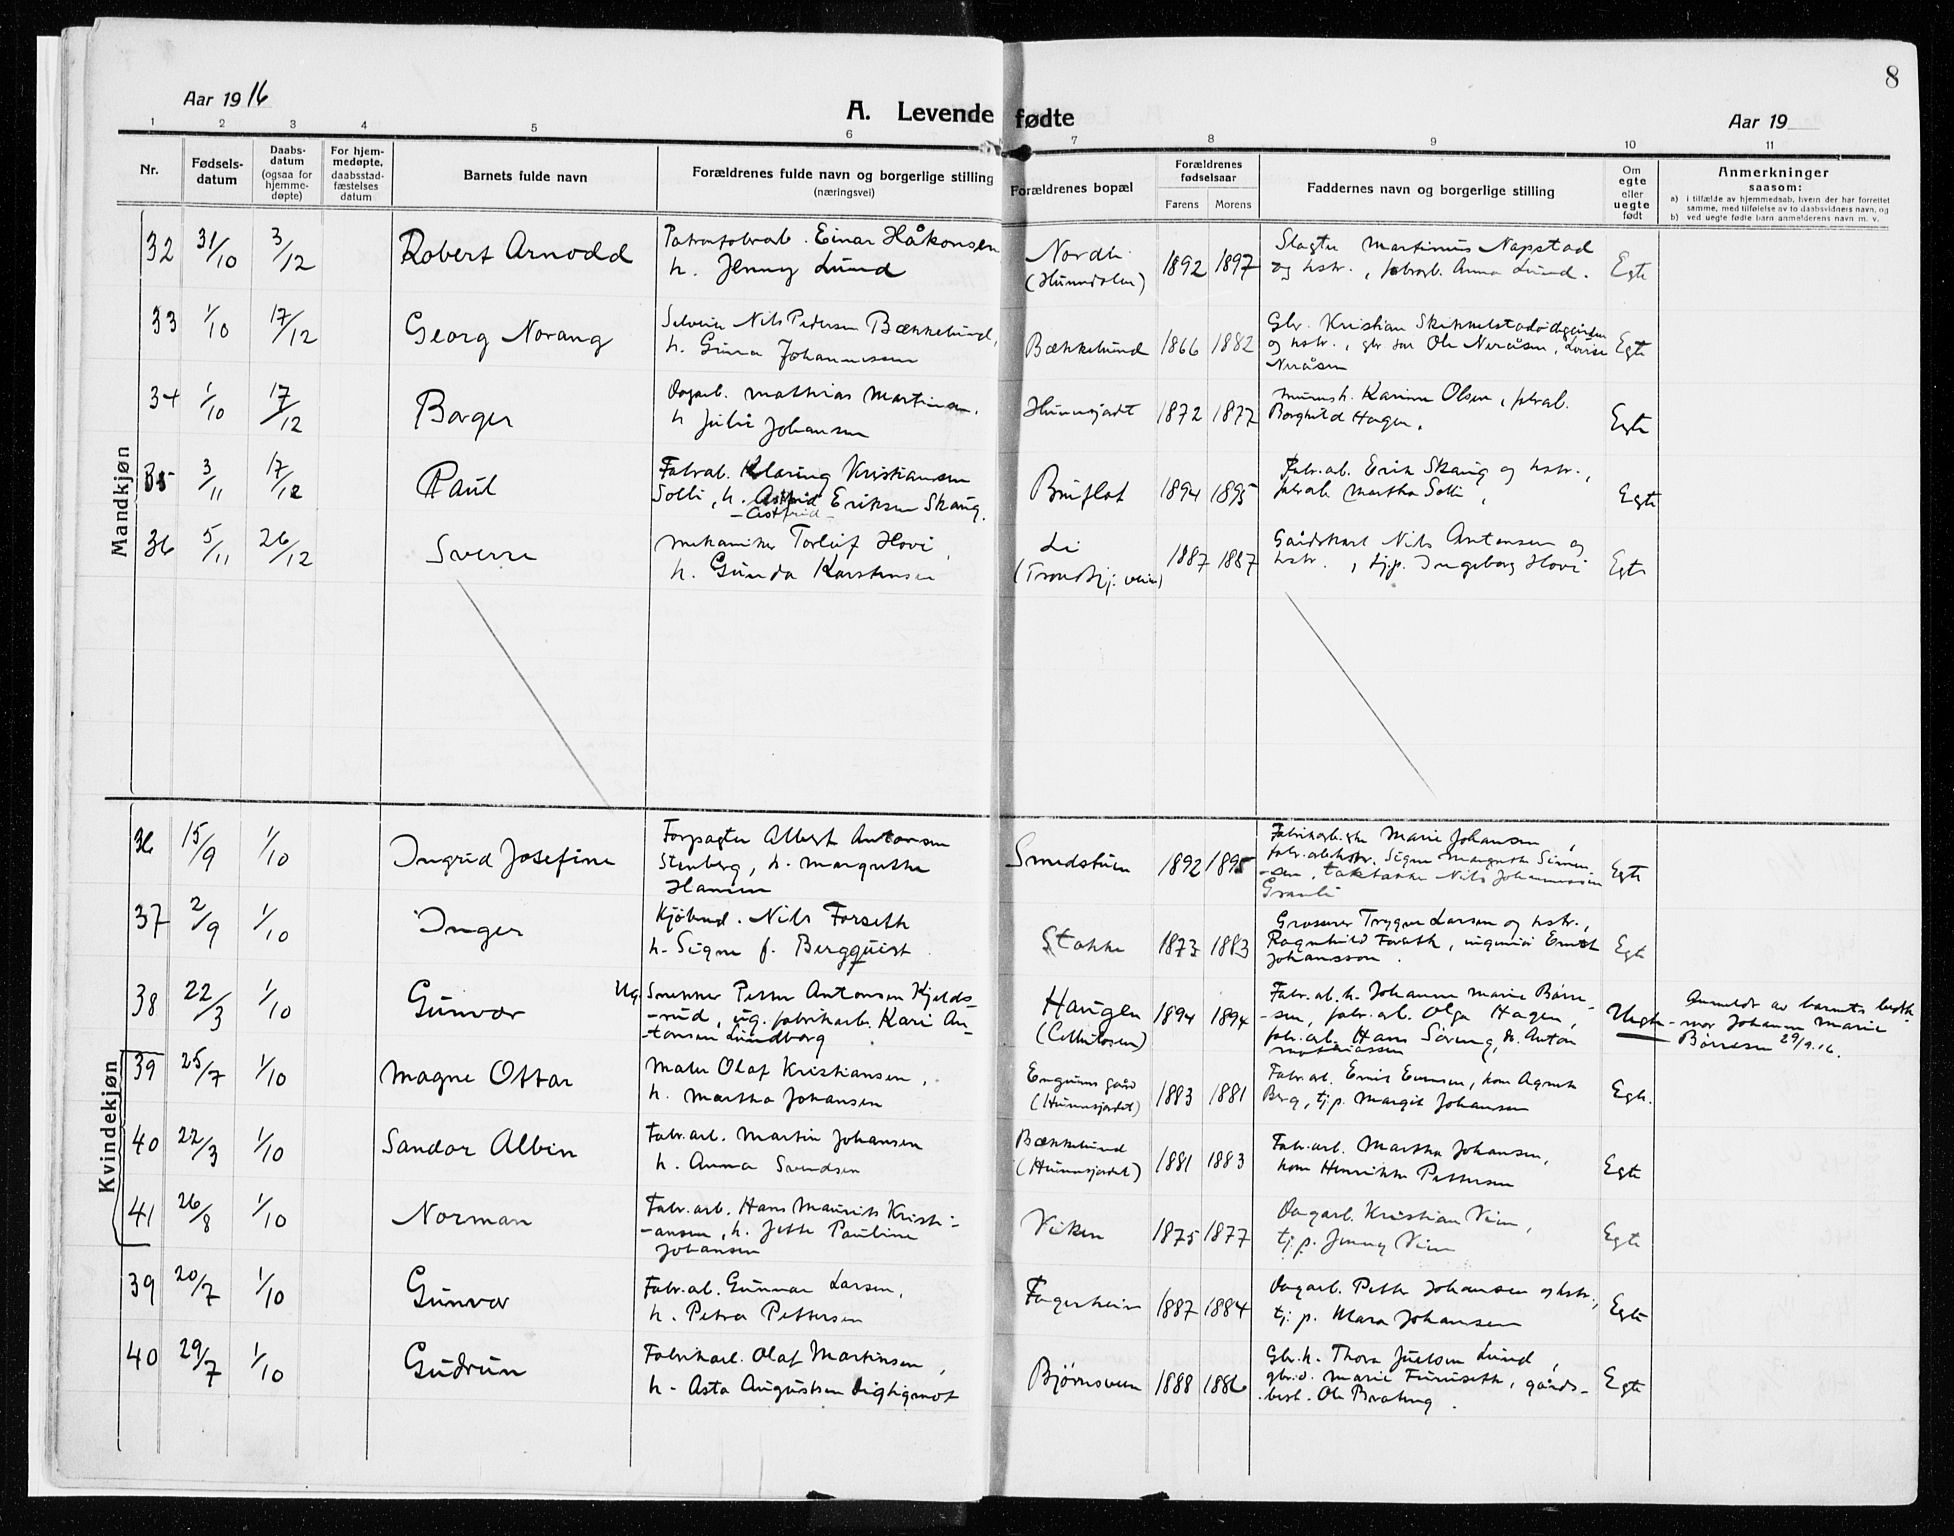 8
Aar 1916
A. Levende fødte
Aar 19
1 2 3 4 5 6 7 8 9 10 11
Nr.
Fødsels-
datum
Daabs-
datum
(ogsaa for
hjemme-
døpte)
For hjem-
medøpte,
daabsstad-
fæstelses
datum
Barnets fulde navn
Forældrenes fulde navn og borgerlige stilling
(næringsvei)
Forældrenes bopæl
Forældrenes
fødselsaar
Farens Morens
Faddernes navn og borgerlige stilling
Om
egte
eller
uegte
født
Anmerkninger
saasom:
a) i tilfælde av hjemmedaab, hvem der har forrettet
samme, med tilføielse av to daabsvidners navn, og
b) ved uegte fødte barn anmelderens navn m. v.
Mandkjøn
32 31/10 3/12 Robert Arnodd
Einar Håkonsen
h. Jenny Lund
Nordli
1892 1897
Slagter Martinius Napstad
og hstr., Anna Lund.
Egte
33 1/10 17/12 Georg Norang
Nils Pedersen Bækkelund,
h. Johannessen
Bækkelund 1866 1882
Gbr. Kristian
og hstr., Ole Neråsen, Lovise
Neråsen
Egte
34 1/10 17/12 Borger
Dagarb. Mathias Martinsen,
h. Julie Johansen
Hunnsjordet 1872 1877
Karine Olsen, fabrarb.
Borghild Hagen.
Egte
35 3/11 17/12 Paul
Fabrab. Klaring Kristiansen
Solli, h. Astrid Eriksen Skaug.
- Astrid -
Bruflat 1894 1895
Fabr.arb. Erik Skaug og hstr.,
fabrarb. Martha Solli,
Egte
36 5/11 26/12 Sverre
Mekaniker Torleif Hovi,
h. Gunda Karstensen
Li
1887 1887
Gårdskarl Nils Antonsen og
hstr., tj.p. Ingeborg Hovi
Egte
Kvindekjøn
36 15/9 1/10 Ingrid Josefine
Forpagter Albert Antonsen
Stenberg, h. Margrethe
Hansen
Smedstuen 1892 1895
Marie Johansen,
Signe Margrethe Simen-
-sen, Nils Johannessen
Granli
Egte
37 2/9 1/10 Inger
Kjøbmd. Nils Forseth
h. Signe f. Bergquist
Stokke 1873 1883
Grosserer Trygve Larsen og hstr.,
Ragnhild Forseth, ingeniør Ernst
Johansson.
Egte
38 22/3 1/10 Gunvor
Ug. Snekker Petter Antonsen Kjelds-
-rud, ug. fabrikarb. Kari An-
-tonsen Lundborg
Haugen
(Cellulosen)
1894 1894
Fabr.arb.h. Johanne Marie Børre-
-sen, fabr.arb. Olga Hagen,
fabr.arb. Hans Anton
Mathiassen
Uegte
Anmeldt av barnets bedste-
mor Johanne Marie
Børresen 29/9.16.
39 25/7 1/10 Magne Ottar
Maler Olaf Kristiansen,
h. Martha Johansen
(Hunnsjordet)
1883 1881
Fabr.arb. Emil Evensen, kone Agnete
Berg, tj.p. Margit Johansen
Egte.
40 22/3 1/10 Sandor Albin
Fabr.arb. Martin Johansen
h. Anna Svendsen
Bækkelund
(Hunnsjordet)
1881 1883
Fabr.arb. Martha Johansen,
kone Henrikke Pettersen
Egte
41 26/8 1/10 Norman
Fabr.arb. Hans Maurits Kristi-
-ansen, h. Jette Pauline
Johansen
Viken 1875 1877
Dagarb. Kristian Vien,
tj.p. Jenny Vien
Egte
39 20/7 1/10 Gunvor
Fabr.arb. Gunnar Larsen,
h. Petra Pettersen
Fagerheim 1887 1884
Dagarb. Petter Johansen og hstr.,
tj.p. Mara Johansen
Egte
40 29/7 1/10 Gudrun
Fabrikarb. Olaf Martinsen,
h. Asta Augustsen Digtigmot
Bjørnsveen 1888 1886
Gbr.h. Thora Juelsen Lund,
Marie Furuseth, gårds-
best. Ole Brateng.
Egte